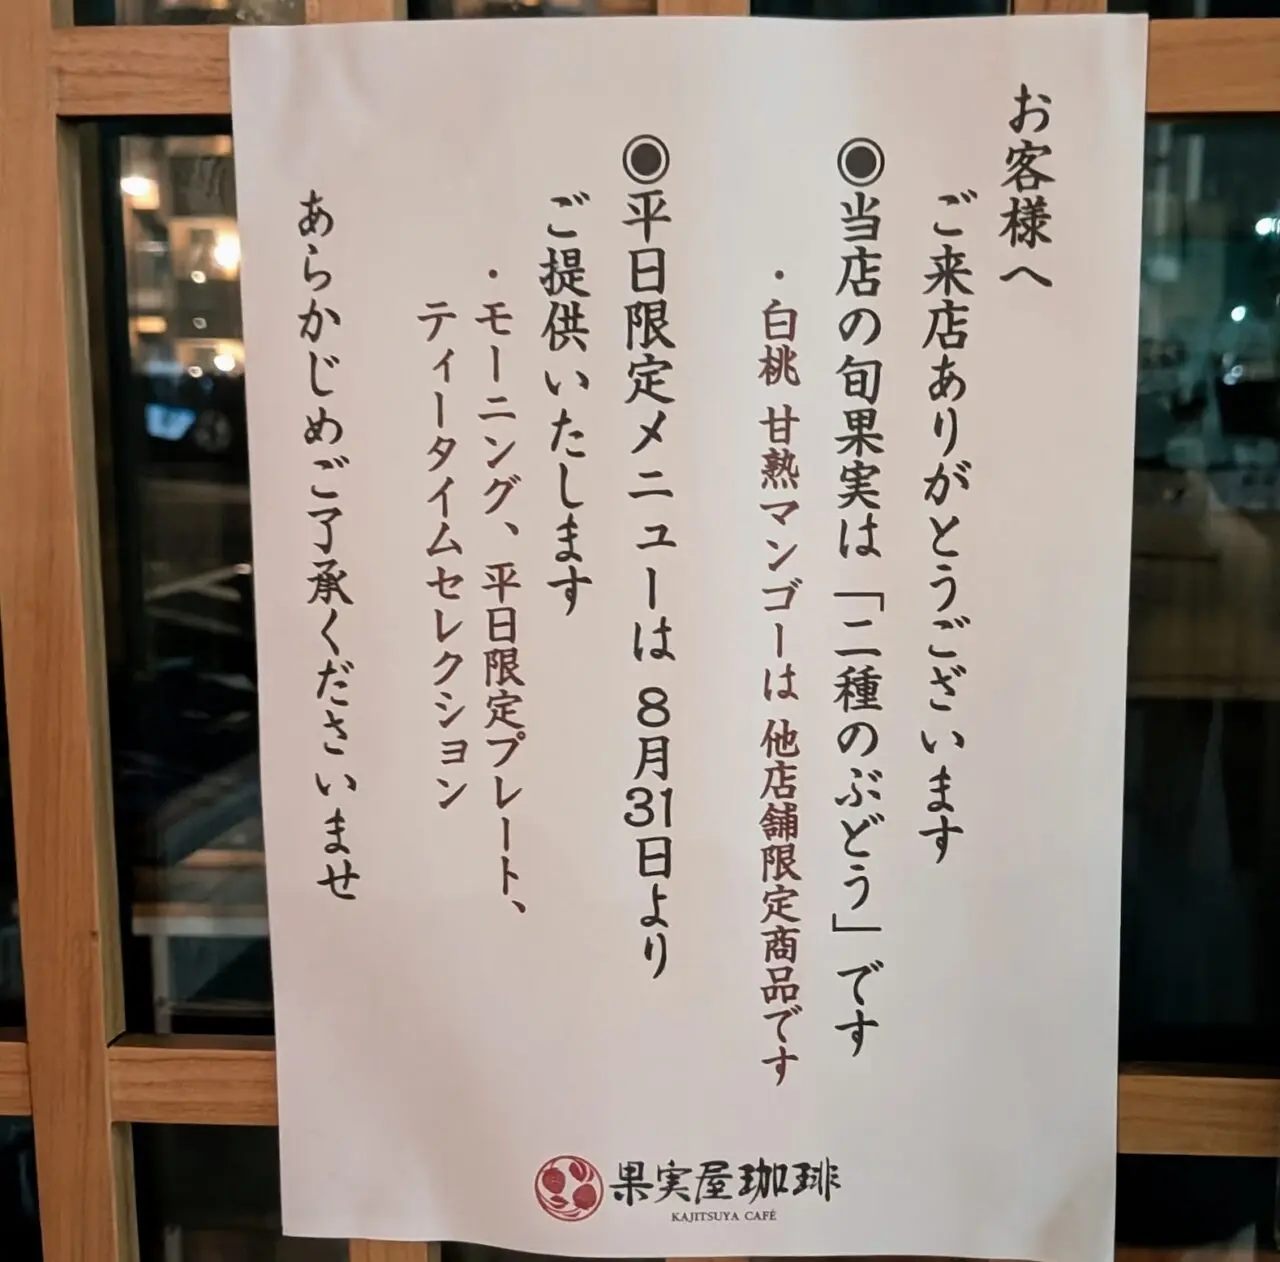 お客様へ
ご来店ありがとうございます
◉当店の旬果実は「二種のぶどう」です
・白桃 甘熟マンゴーは 他店舗限定商品です
◉平日限定メニューは 8月31日より
ご提供いたします
・モーニング、平日限定プレート、
ティータイムセレクション
あらかじめご了承くださいませ
果実屋珈琲
KAJITSUYA CAFÉ